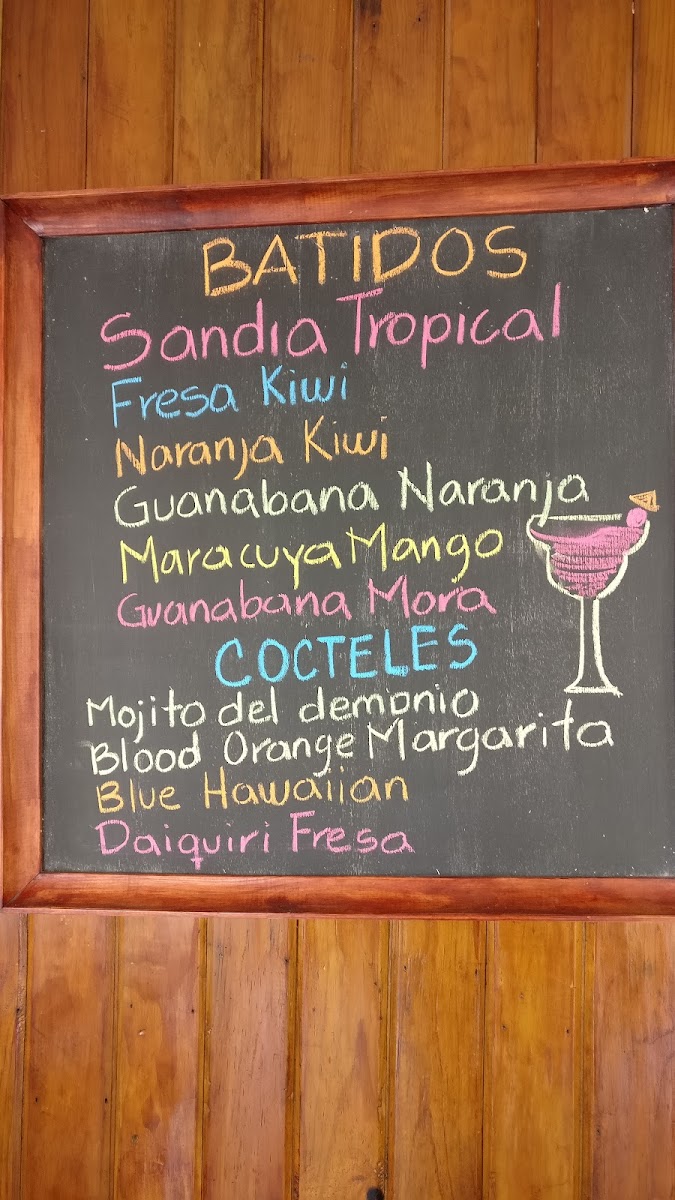 BATIDOS
Sandia Tropical
Fresa Kiwi
Naranja Kiwi
Guanabana Naranja
Maracuya Mango
Guanabana Mora
COCTELES
Mojito del demonio
Blood Orange Margarita
Blue Hawaiian
Daiquiri Fresa